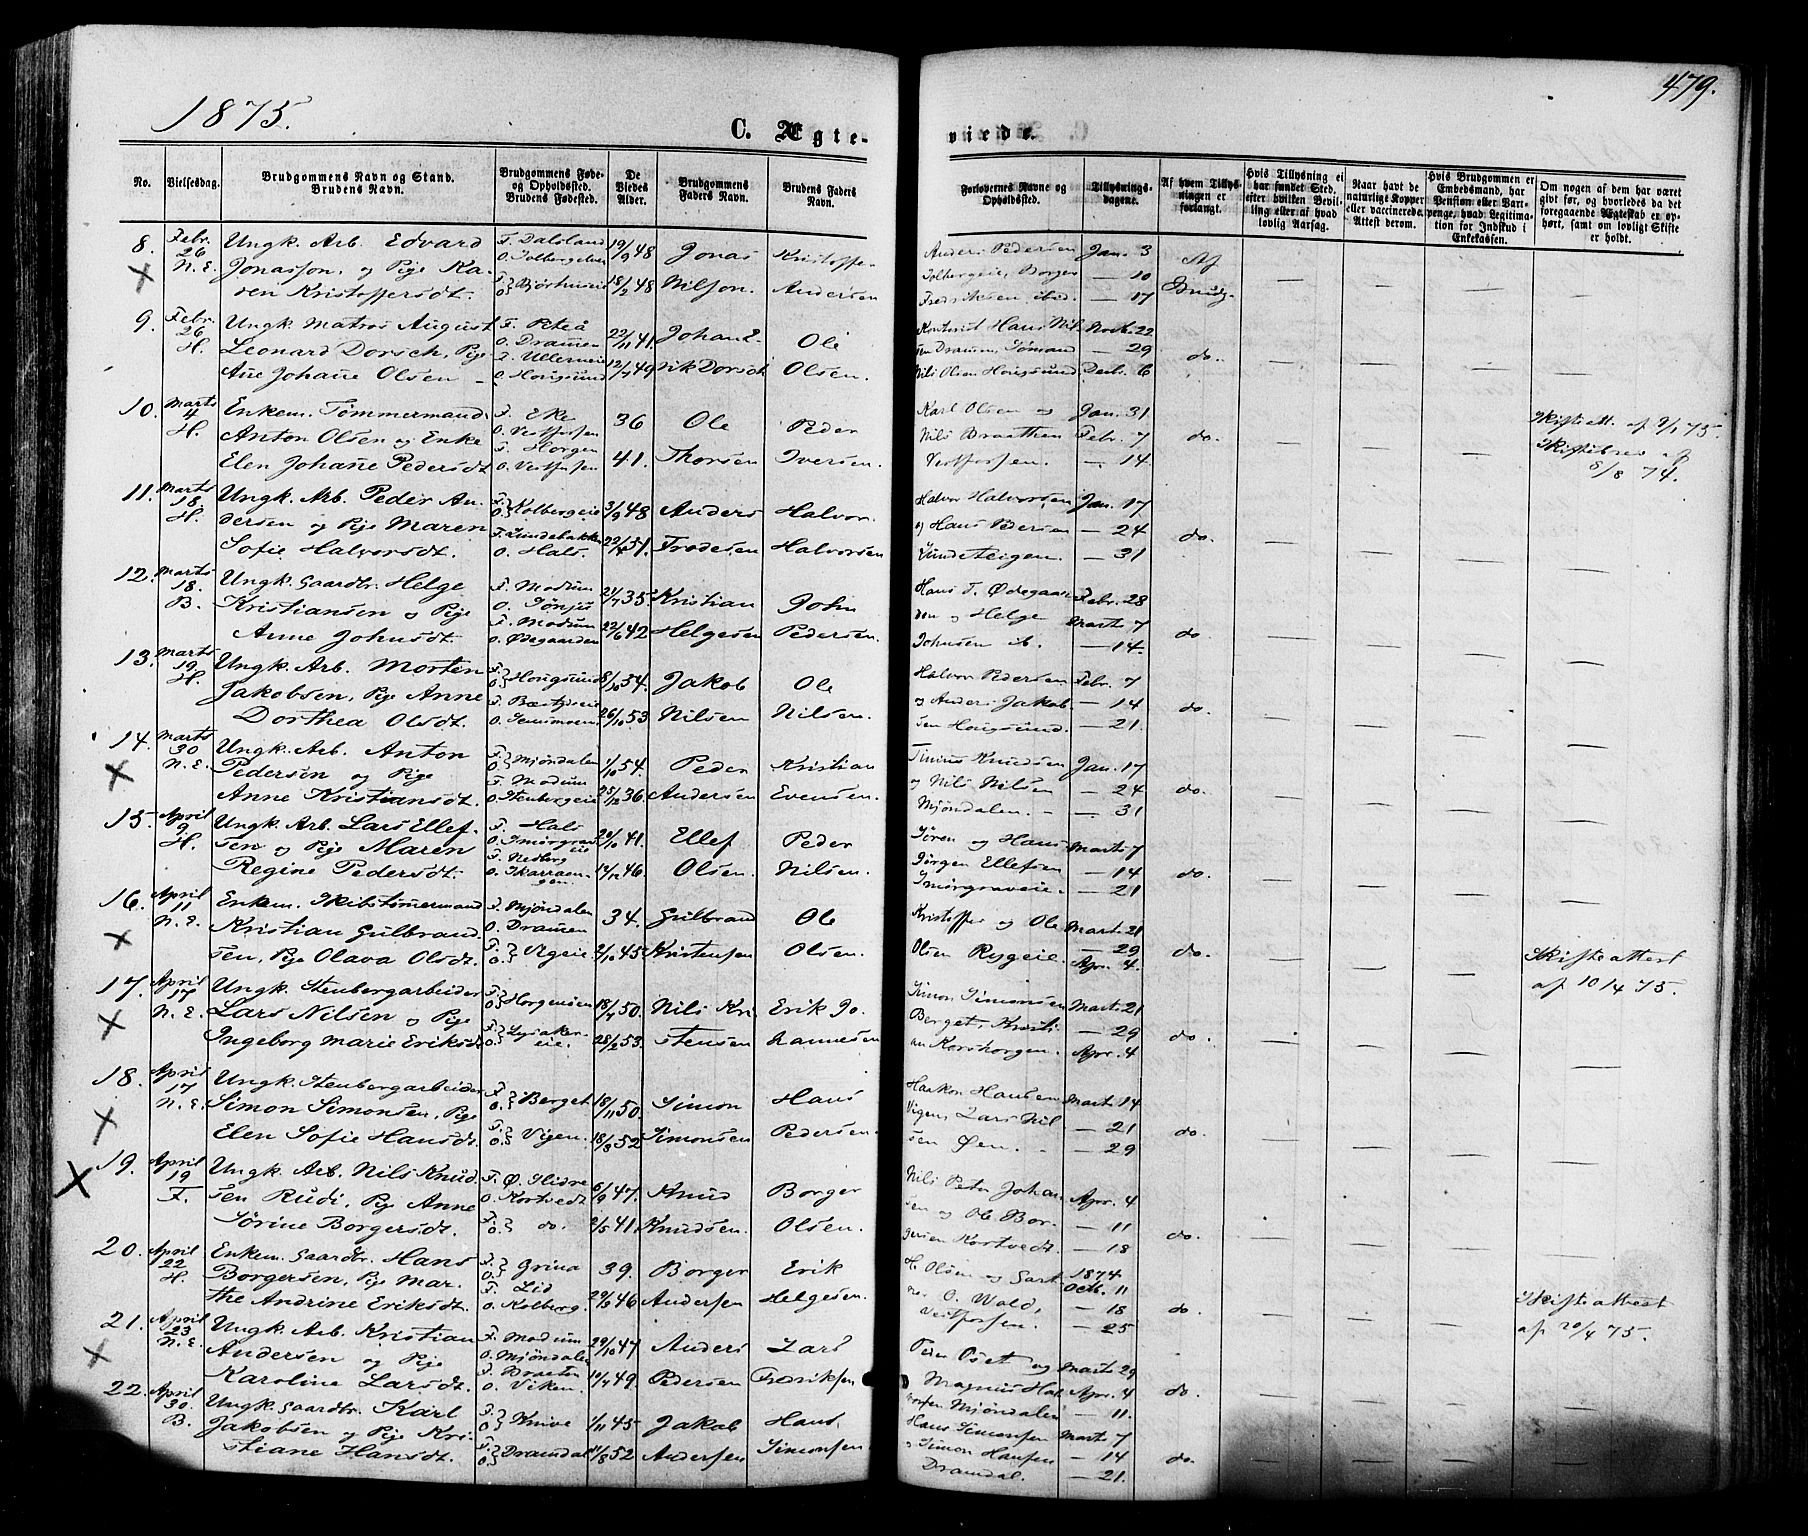 1875.
479.
C. Ægte-
viede.
No.
Vielsesdag.
Brudgommens Navn og Stand.
Brudens Navn.
Brudgommens Føde-
og Opholdssted.
Brudens Fødested.
De
Viedes
Alder.
Brudgommens
Faders Navn.
Brudens Faders
Navn.
Forlovernes Navne og
Opholdssted.
Tillysnings-
dagene.
Af hvem Tillys-
ningen er
forlangt.
Hvis Tillysning ei
har fundet Sted,
efter hvilken Bevil-
ling eller af hvad
lovlig Aarsag.
Naar havt de
naturlige Kopper
eller vaccinerede.
Attest derom.
Hvis Brudgommen er
Embedsmand, har
Pension eller Vart-
penge, hvad Legitima-
tion for Indskud i
Enkekassen.
Om nogen af dem har været
givt før, og hvorledes da det
foregaaende Ægteskab er op-
hørt, samt om lovligt Skifte
er holdt.
8. Febr. 26 N.E. Ungk. Arb. Edvard F. Dalsland 19/9 48 Jonas Kristoffer Anders Pedersen Jan. 3 Af
Jonasson, og Pige Ka- O. Solbergelven Solbergeie, Borger — 10
ren Kristoffersdt. 18/2 48 Nilson. Andersen Fredriksen ibid. — 17 Brudg.
9. Febr. 26 H. Ungk. Matros August F. Piteå 22/11 41 Johan E- Ole Kontorist Hans Nil- Novb. 22
Leonard Dorsch, Pige O. Drammen sen Drammen, Sømand — 29 do.
Ane Johane Olsen F. Ullerneie O. Hougsund 12/7 49 rik Dorsch Olsen. Nils Olsen Hougsund. Decb. 6
10. Marts 4 H. Enkem. Tømmermand F. Eke 36 Ole Peder Karl Olsen og Jan. 31 Skifteatt. af 2/1 75.
Anton Olsen og Enke O. Vestfossen Nils Braathen Febr. 7 do. Skiftebrev af
Elen Johane Pedersdt. F. Horgen O. Vestfossen 41. Thorsen Iversen. Vestfossen. — 14 5/8 74.
11. Marts 18 H. Ungk. Arb. Peder An- F. O. Kolbergeie 3/9 48 Anders Halvor. Halvor Halvorsen Jan. 17
dersen og Pige Maren F. Lundebakken og Hans Pedersen — 24 do.
Sofie Halvorsdt. O. Hals. 51. Frodesen Halvorsen Lundeteigen. — 31
12. Marts 18. B. Ungk. Gaardbr. Helge F. Modum 21/7 35 Kristian John Hans T. Ødegaar- Febr. 28
Kristiansen og Pige den og Helge Marts 7 do
Anne Johnsdt. F. Modum O. Ødegaarden 22/6 42 Helgesen Pedersen. Johnsen ib. — 14.
13. Marts 19 H. Ungk. Arb. Morten F. O. Hougsund 8/10 54. Jakob Ole Halvor Pedersen Febr. 7
Jakobsen, Pige Anne og Anders Jakob- — 14 do.
Dorthea Olsdt. 26/10 53 Nilsen Nilsen. sen Hougsund. — 21.
14. Marts 30 N.E. Ungk. Arb. Anton F. O. Mjøndalen 1/10 54. Peder Kristian Timius Knudsen Jan. 17
Pedersen og Pige F. Modum og Nils Nilsen — 24 do.
Anne Kristiansdt. O. Stenbergeie 25/12 36 Andersen Evensen. Mjøndalen. — 31
15. April 9 H. Ungk. Arb. Lars Ellef- F. Hals 20/10 41. Ellef Peder Søren og Hans Marts 7
sen og Pige Maren O. Smørgraveie Jørgen Ellefsen — 14 do.
Regine Pedersdt. F. Nedberg 14/12 46. Olsen. Nilsen. Smørgraveie. — 21
16. April 11 N.E. Enkem. Skibstømmermand F. Mjøndalen 34. Gulbrand Ole Kristoffer og Ole Marts 21
Kristian Gulbrand- O. Drammen Olsen Rygeie. — 29 do. Skifteattest
sen, Pige Olava Olsdt. 2/10 45 Kristensen Olsen. Apr. 4. af 10/4 75.
17. April 17 N.E. Ungk. Stenbergarbeider F. O. Horgenseie 18/4 50. Nils Kri- Erik Jo- Simon Simonsen Marts 21
Lars Nilsen og Pige F. Lysaker- Berget, Kristi- — 29 do.
Ingeborg Marie Eriksdt. O. eie. 28/2 53. stensen hannesen an Korshorgen. Apr. 4
18. April 17 N.E. Ungk. Stenbergarbeider F. O. Berget 18/11 50. Simon Hans Haakon Hansen Marts 14
Simon Simonsen, Pige Vigen, Lars Nil- — 21 do.
Elen Sofie Hansdt. F. O. Vigen. 18/8 52 Simonsen Pedersen. sen Øen. — 29
19. April 19 F. Ungk. Arb. Nils Knud- F. Ø. Slidre 6/9 47. Knud Borger Nils Peter Johan- Apr. 4
sen Rudi, Pige Anne O. Kortvedt sen og Ole Bor- — 11
Sørine Borgersdt. F. O. do. 2/5 41. Knudsen. Olsen. gersen Kortvedt. — 18 do.
20. April 22 H. Enkem. Gaardbr. Hans F. O. Grina 39. Borger Erik H. Olsen og Gart- 1874 Octb. 11
Borgersen, Pige Mar- F. Lid ner O. Wald, — 18 do. Skifteattest
the Andrine Eriksdt. O. Kolberg. 29/3 46 Andersen Helgesen. Vestfossen. — 25 af 20/4 75.
21. April 23 N.E. Ungk. Arb. Kristian F. Modum 29/10 47 Anders Lars Peder Oset og Marts 29
Andersen og Pige O. Mjøndalen Magnus Hal- Apr. 4 do.
Karoline Larsdt. F. Braaten O. Viken. 10/4 49. Pedersen Fredriksen vorsen Mjøndalen — 11.
22. April 30. B. Ungk. Gaardbr. Karl F. O. Knive 1/11 45 Jakob Hans Hans Simonsen Marts 7
Jakobsen og Pige Kri- og Simon Hansen — 14 do.
stiane Hansdt. F. O. Dramdal 11/8 52 Andersen Simonsen Dramdal. — 21.